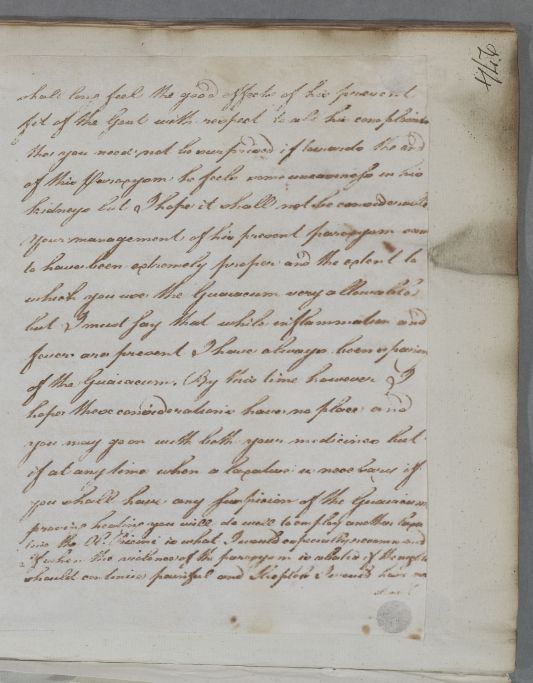 274
shall long feel the good effects of his present
fit of the Gout with respect to all his complaints
tho you need not be surprised if towards the end
of this Paroxysm he feels some uneasiness in his
kidneys but I hope it shall not be considerable
Your management of his present paroxysm seems
to have been extremely proper and the extent to
which you use the Guaiacum very allowable
but I must say that while inflammation and
fever are present I have always been sparing
of the Guaiacum. By this time however I
hope these considerations have no place and
you may go on with both your medicines but
if at any time when a laxative is necessary if
you shall have any suspicion of the Guaiacum
proving heating you will do well to employ another laxa
tive the Ol. Ricini is what I would especially recommend
if when the violence of the paroxysm is abated if the
should continue painful and I would have no